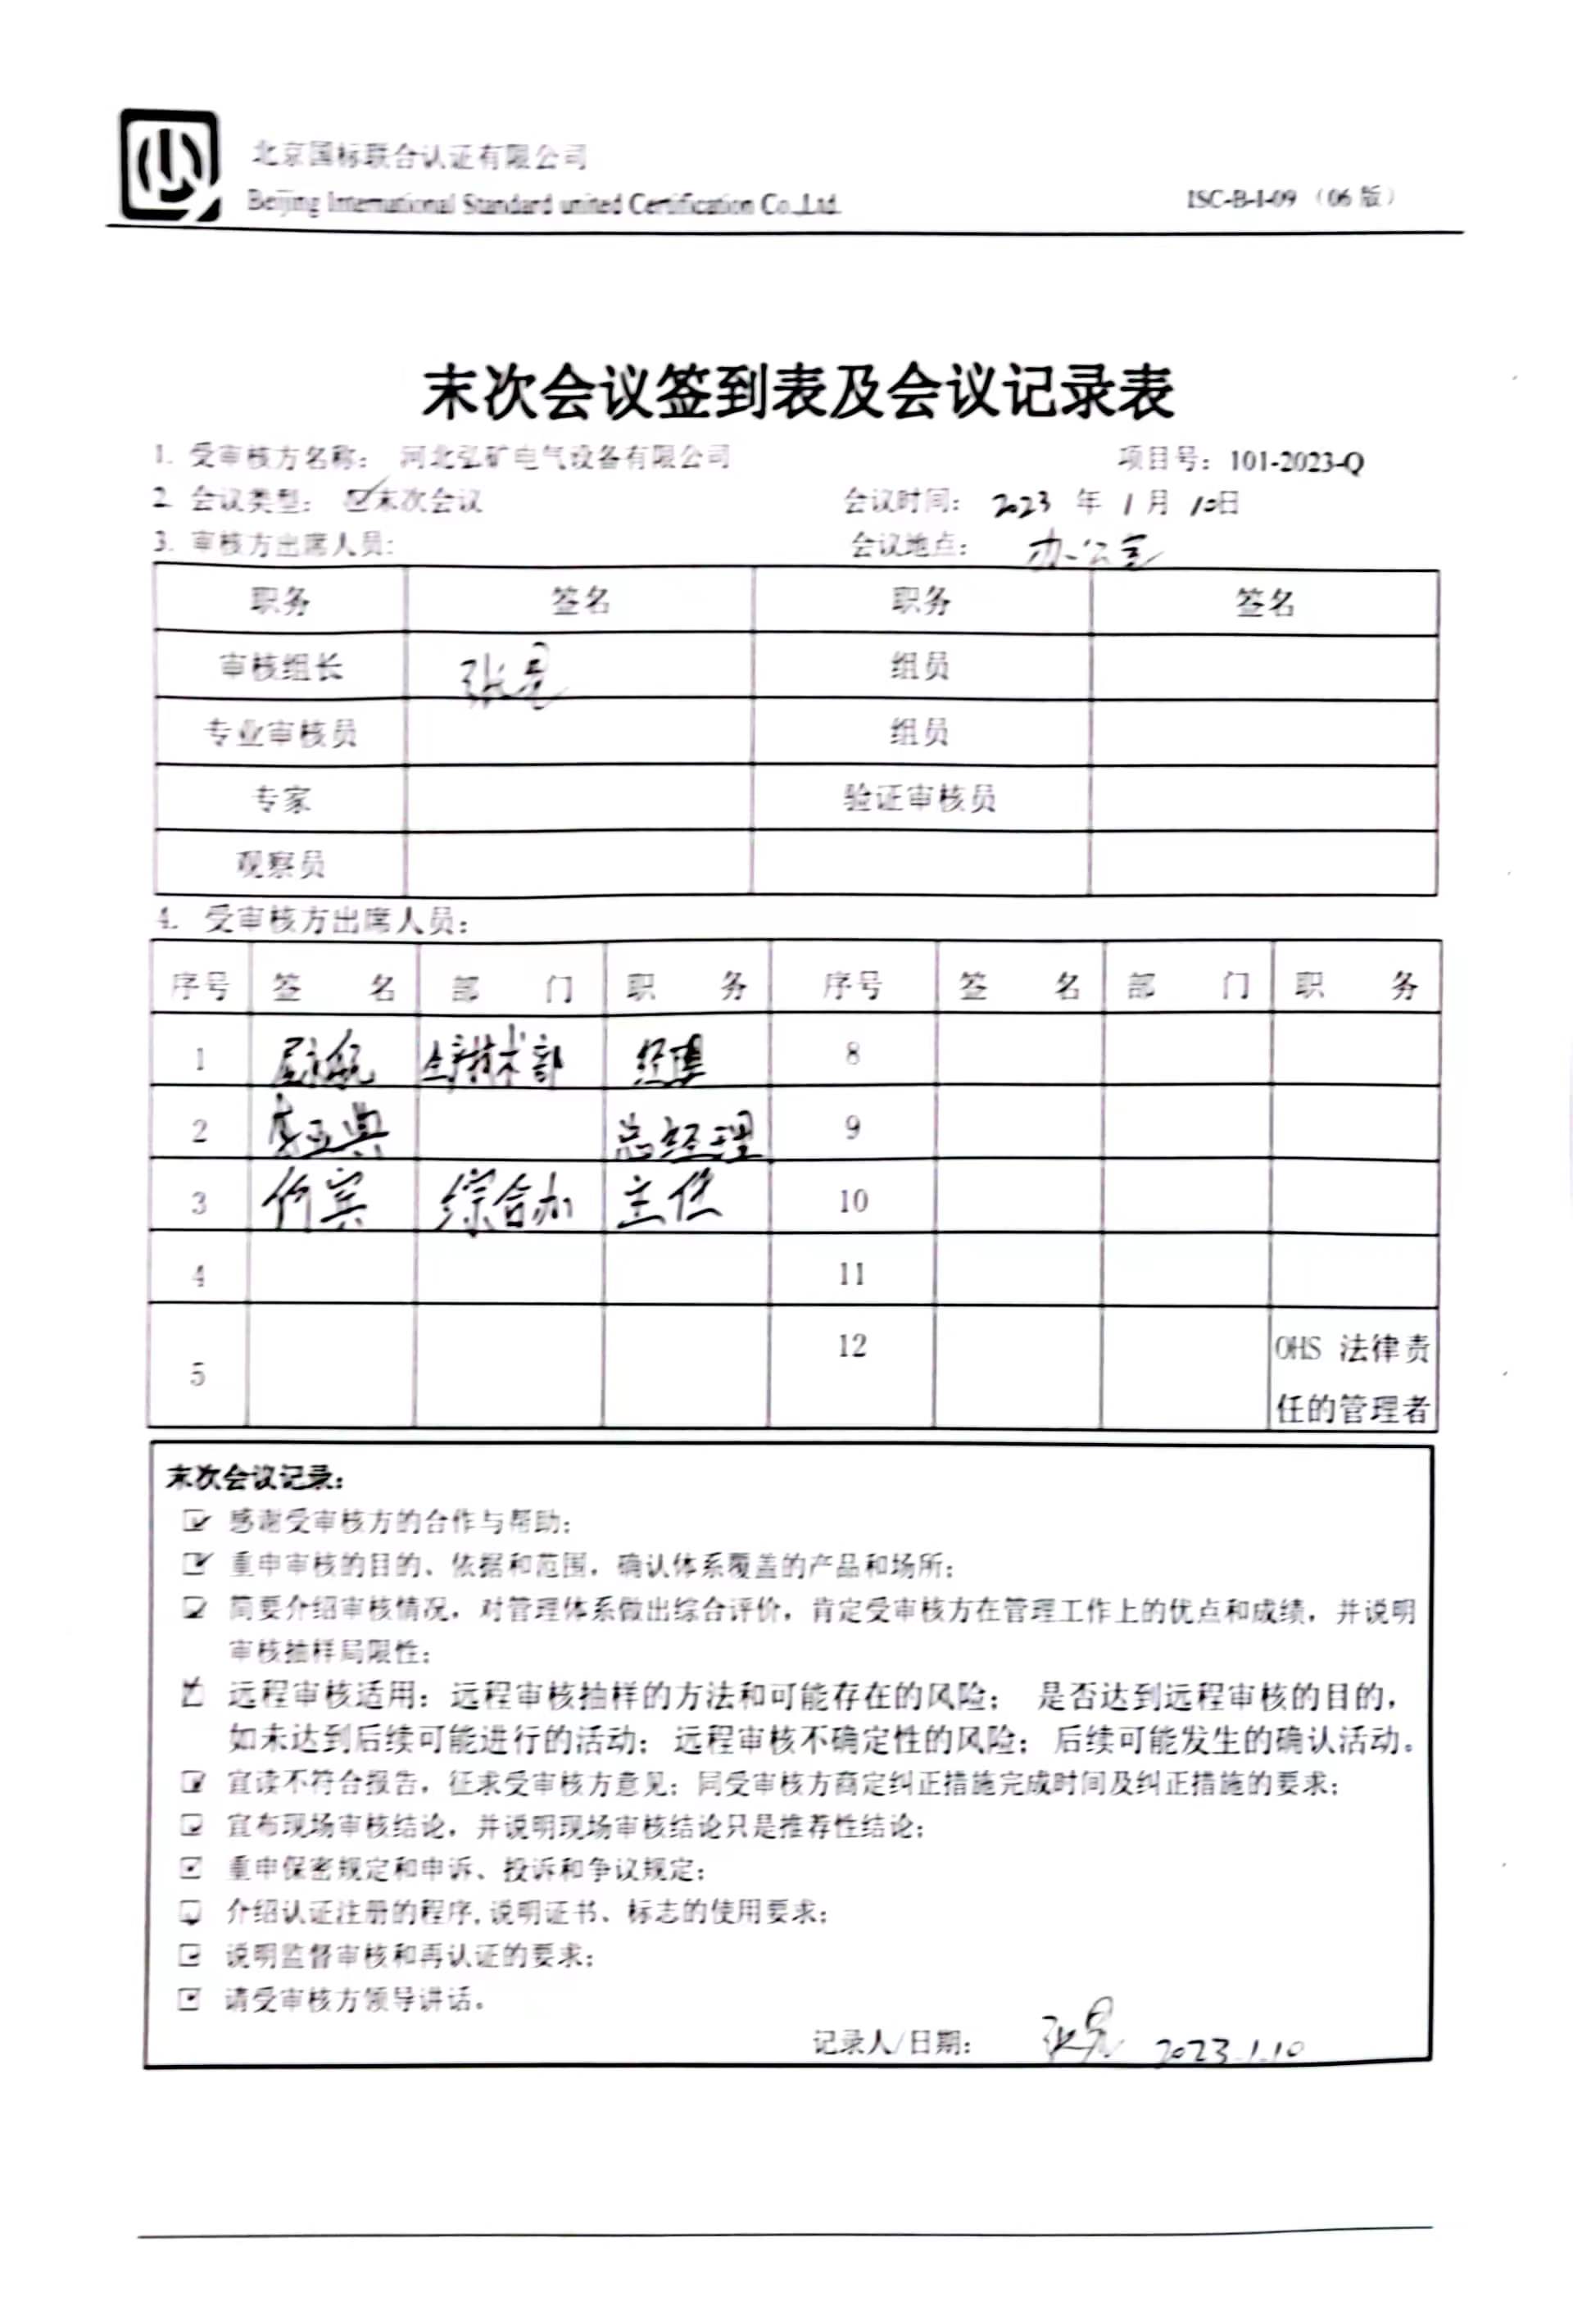 北京国标联合认证有限公司
Beijing International Standard united Certification Co.,Ltd.
ISC-B-I-09（06版）
末次会议签到表及会议记录表
1. 受审核方名称： 河北弘矿电气设备有限公司 项目号：101-2023-Q
2. 会议类型： ☑末次会议 会议时间： 2023 年 1 月 10日
3. 审核方出席人员: 会议地点： 办公室
职务 签名 职务 签名
审核组长 组员
专业审核员 组员
专家 验证审核员
观察员
4. 受审核方出席人员：
序号 签 名 部 门 职 务 序号 签 名 部 门 职 务
1 生产技术部 经理 8
2 李亚典 总经理 9
3 综合办 主任 10
4 11
5 12 OHS 法律责
任的管理者
末次会议记录：
☑ 感谢受审核方的合作与帮助；
☑ 重申审核的目的、依据和范围，确认体系覆盖的产品和场所；
☑ 简要介绍审核情况，对管理体系做出综合评价，肯定受审核方在管理工作上的优点和成绩，并说明
审核抽样局限性；
☑ 远程审核适用：远程审核抽样的方法和可能存在的风险； 是否达到远程审核的目的，
如未达到后续可能进行的活动；远程审核不确定性的风险；后续可能发生的确认活动。
☑ 宣读不符合报告，征求受审核方意见；同受审核方商定纠正措施完成时间及纠正措施的要求；
☑ 宣布现场审核结论，并说明现场审核结论只是推荐性结论；
☑ 重申保密规定和申诉、投诉和争议规定；
☑ 介绍认证注册的程序,说明证书、标志的使用要求；
☑ 说明监督审核和再认证的要求；
☑ 请受审核方领导讲话。
记录人/日期： 2023.1.10